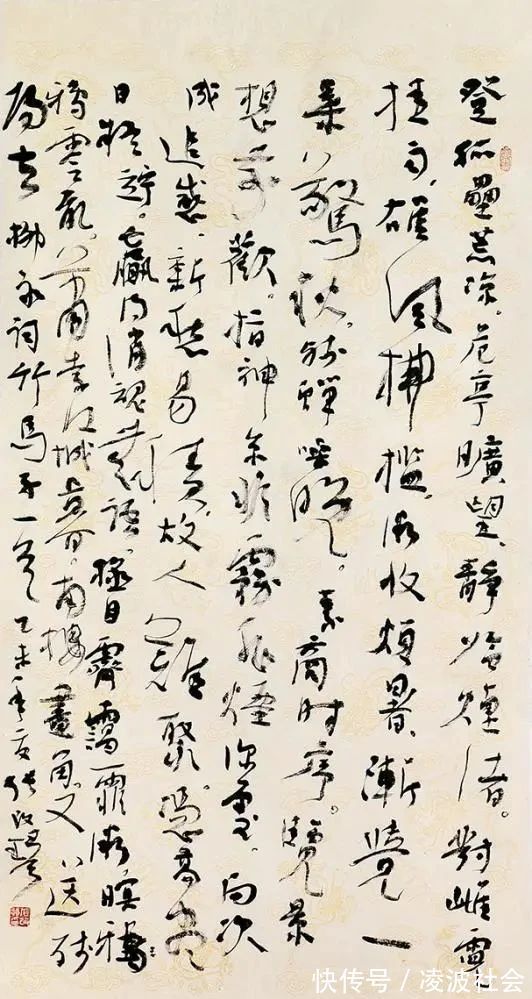 登孤壘荒涼，危亭曠望，靜臨煙渚。對雌霓
挂雨，雄風拂檻，微收煩暑。漸覺一
葉驚秋，殘蟬噪晚。素商時序。覽景
想前歡，指神京非霧非煙深處。向次
成追感，新愁易積，故人難聚。憑高盡
日凝竚。贏得消魂無語。極目霽靄霏微暝鴉
鴉零亂，蕭索江城暮。南樓畫角，又送殘
陽去 柳永詞竹馬子一首 乙未年夏 張改琴
快传号/凌波社会